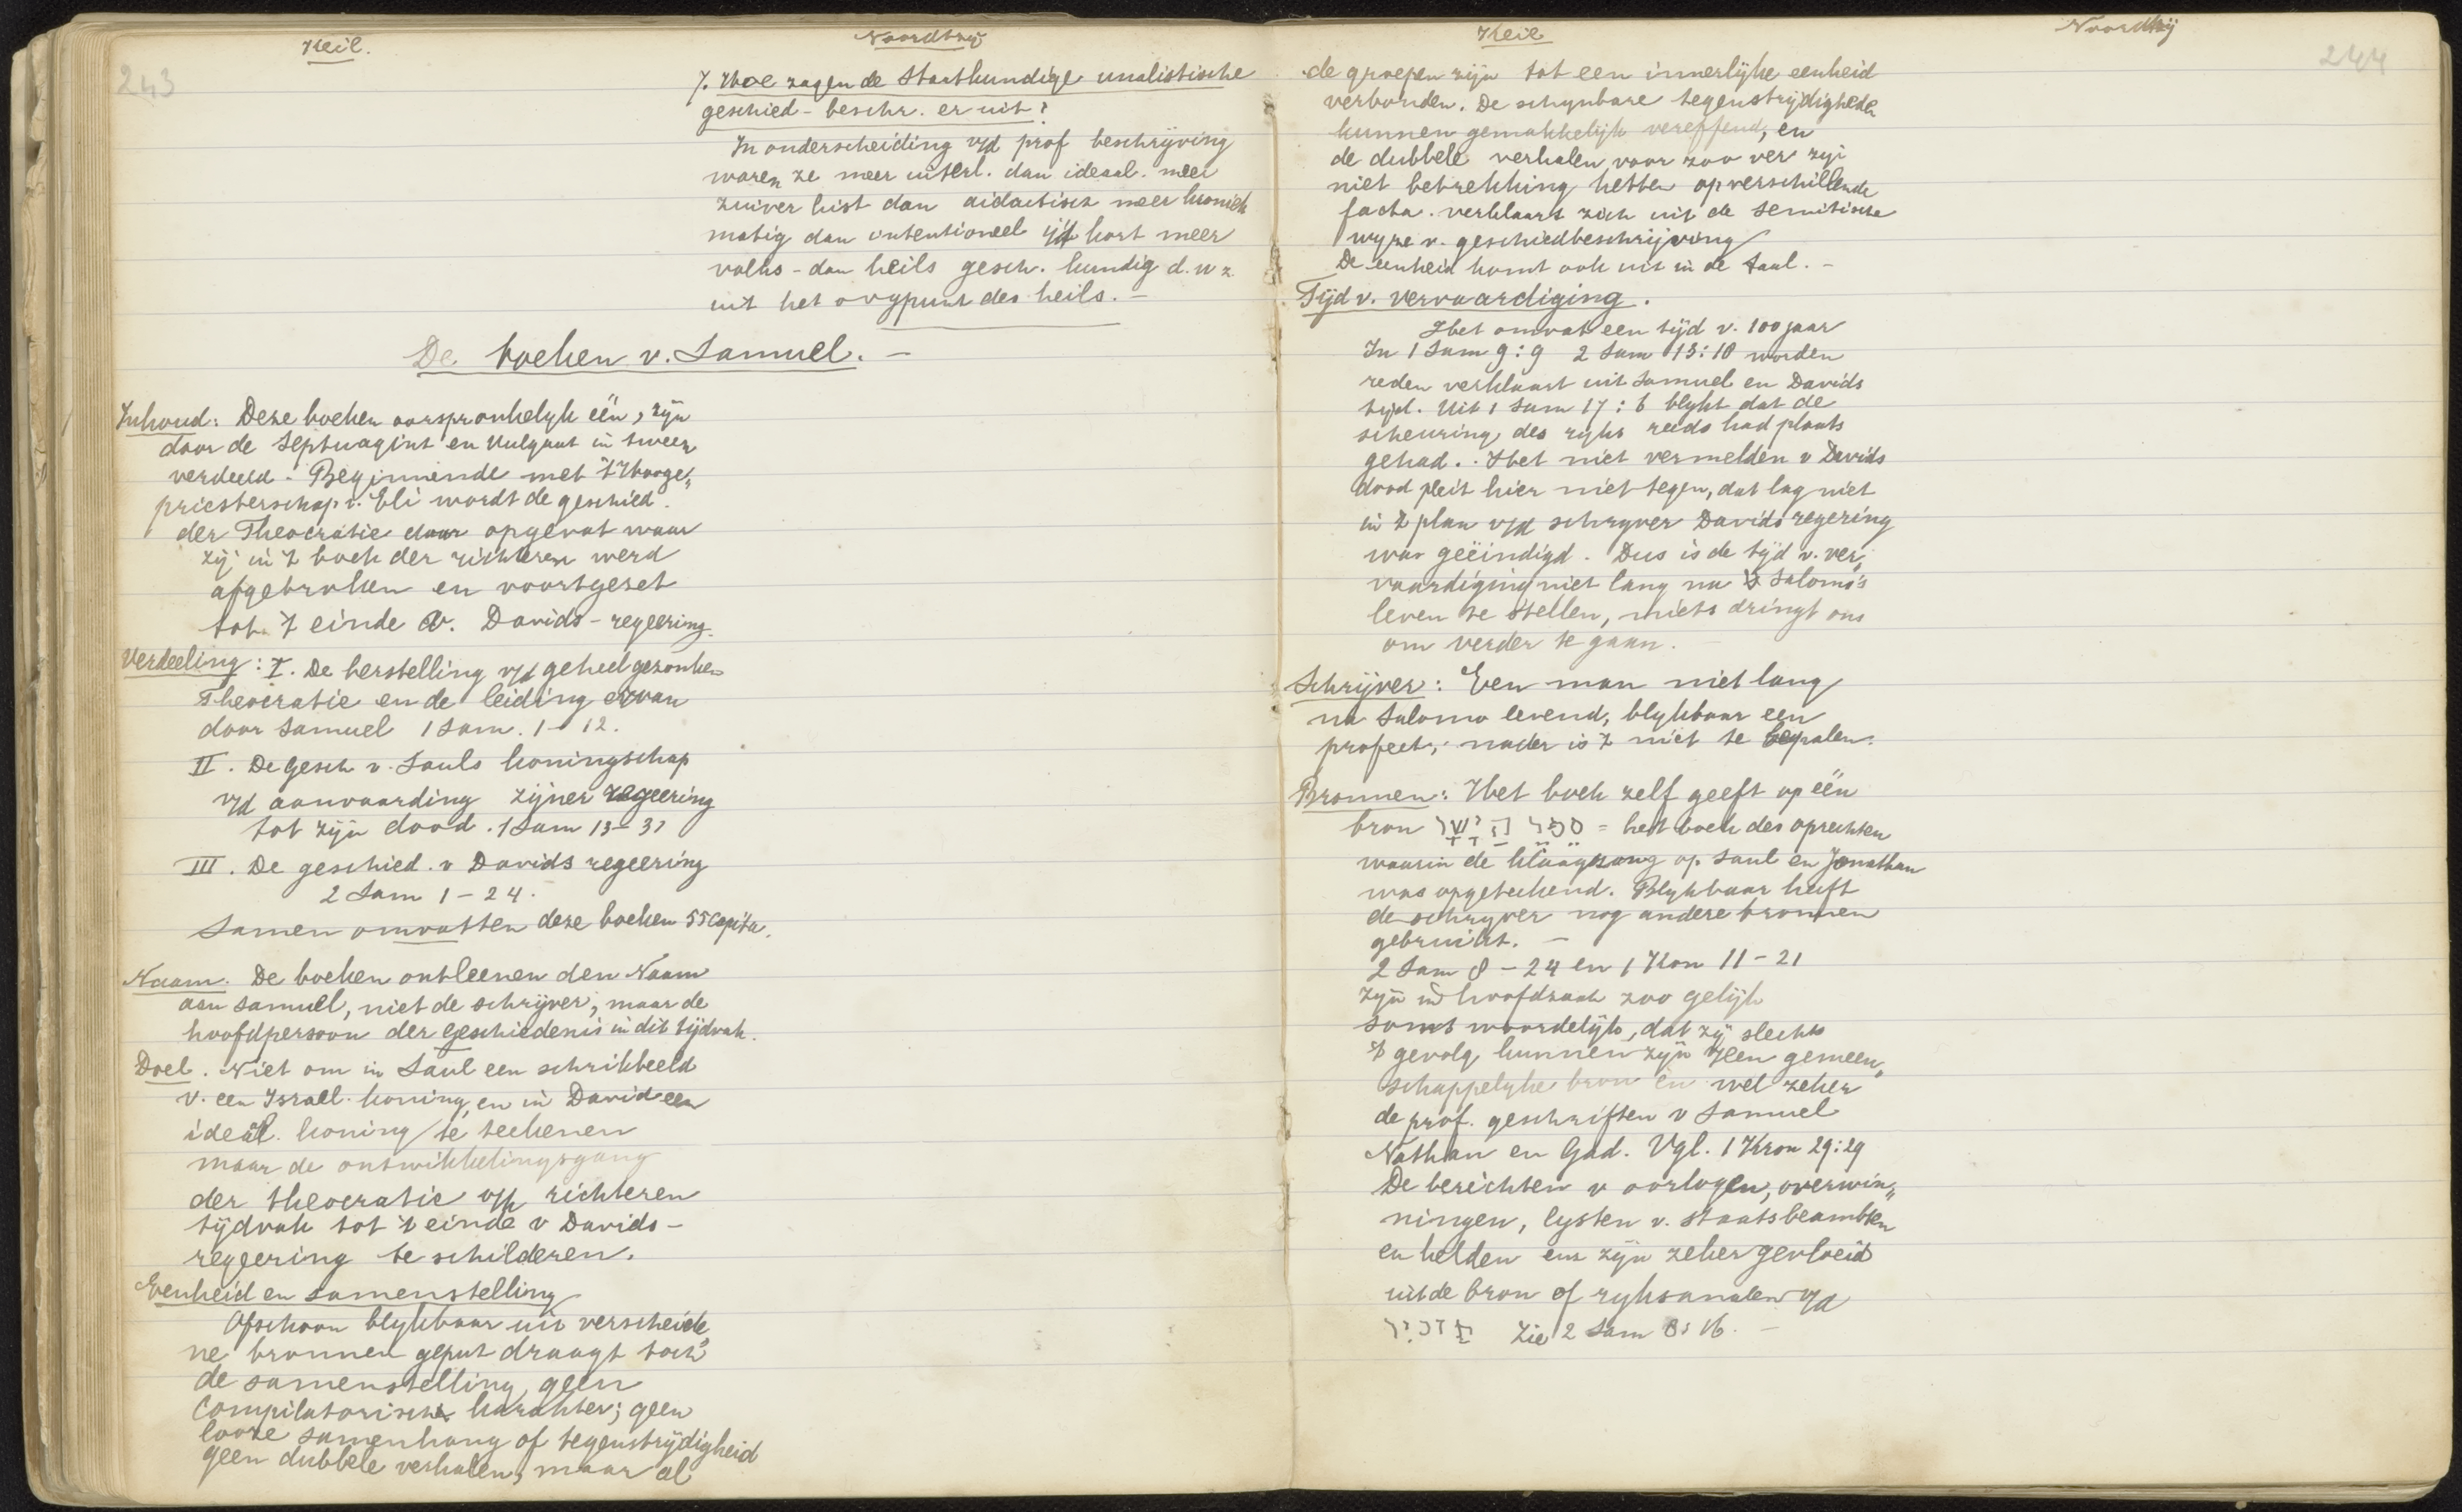 243
Keil.
Noordtzij
7. Hoe zagen de staatkundige analistische
geschied-beschr. er uit?
In onderscheiding v/d prof beschrijving
waren ze meer uiterl. dan ideaal. meer
zuiver hist dan didactisch meer kroniek
matig dan intentioneel ijtt kort meer
volks-dan heils gesch. kundig d.w.z
uit het oogpunt des heils. —
De boeken v. Samuel. —
Inhoud: Deze boeken oorspronkelyk één, zijn
door de Septuagint en Vulgaat in tweeen
verdeeld. Beginnende met 't Hooge„
priesterschap v. Eli wordt de geschied.
der Theocratie daar opgevat waar
zij in 't boek der richteren werd
afgebroken en voortgezet
tot 't einde v. Davids-regeering.
Verdeeling: I. De herstelling v/d geheel gezonken
Theocratie en de leiding ervan
door Samuel 1 Sam. 1-12.
II. De gesch v. Sauls koningschap
v/d aanvaarding zijner regeering
tot zijn dood. 1 Sam 13-31
III. De geschied. v Davids regeering
2 Sam 1-24.
Samen omvatten deze boeken 55 Capita.
Naam. De boeken ontleenen den Naam
aan Samuel, niet de schrijver, maar de
hoofdpersoon der geschiedenis in dit tijdvak.
Doel. Niet om in Saul een schrikbeeld
v. een Israel. koning, en in David een
ideal. koning te teekenen
maar de ontwikkelingsgang
der theocratie v/h richteren
tijdvak tot 't einde v Davids-
regeering te schilderen.
Eenheid en samenstelling
Ofschoon blykbaar uit verscheide„
ne bronnen geput draagt toch
de samenstelling geen
Compilatorisch karakter; geen
looze samenhang of tegenstrijdigheid
geen dubbele verhalen, maar al
Keil
Noordtzij
244
de groepen zijn tot een innerlijke eenheid
verbonden. De schynbare tegenstrijdigheden
kunnen gemakkelijk vereffend, en
de dubbele verhalen voor zoo ver zij
niet betrekking hebben op verschillende
facta. verklaart zich uit de semitische
wyze v. geschiedbeschrijving
De eenheid komt ook uit in de taal. —
Tijd v. vervaardiging.
Het omvat een tijd v. 100 jaar
In 1 Sam 9:9 2 Sam 13:18 worden
reden verklaart uit Samuel en Davids
tijd. Uit 1 Sam 27:6 blykt dat de
scheuring des ryks reeds had plaats
gehad. Het niet vermelden v Davids
dood pleit hier niet tegen, dat lag niet
in 't plan v/d schryver Davids regering
was geëindigd. Dus is de tijd v. ver„
vaardiging niet lang na Salomo's
leven te stellen, niets dringt ons
om verder te gaan.
Schrijver: Een man niet lang
na Salomo levend, blykbaar een
profeet, nader is 't niet te bepalen.
Bronnen: Het boek zelf geeft op één
bron סֵפֶר הַיָּשָׁר = het boek des oprechten
waarin de klaagzang op Saul en Jonathan
was opgeteekend. Blykbaar heeft
de schryver nog andere bronnen
gebruikt. —
2 Sam 8-24 en 1 Kron 11-21
zijn in hoofdzaak zoo gelijk
soms woordelijk, dat zij slechts
't gevolg kunnen zijn v een gemeen„
schappelyke bron en wel zeker
de prof. geschriften v Samuel
Nathan en Gad. Vgl. 1 Kron 29:29
De berichten v oorlogen, overwin„
ningen, lysten v. staatsbeambten
en helden enz zijn zeker gevloeid
uit de bron of ryksannalen v/d
מַזְכִּיר Zie 2 Sam 8:16. —